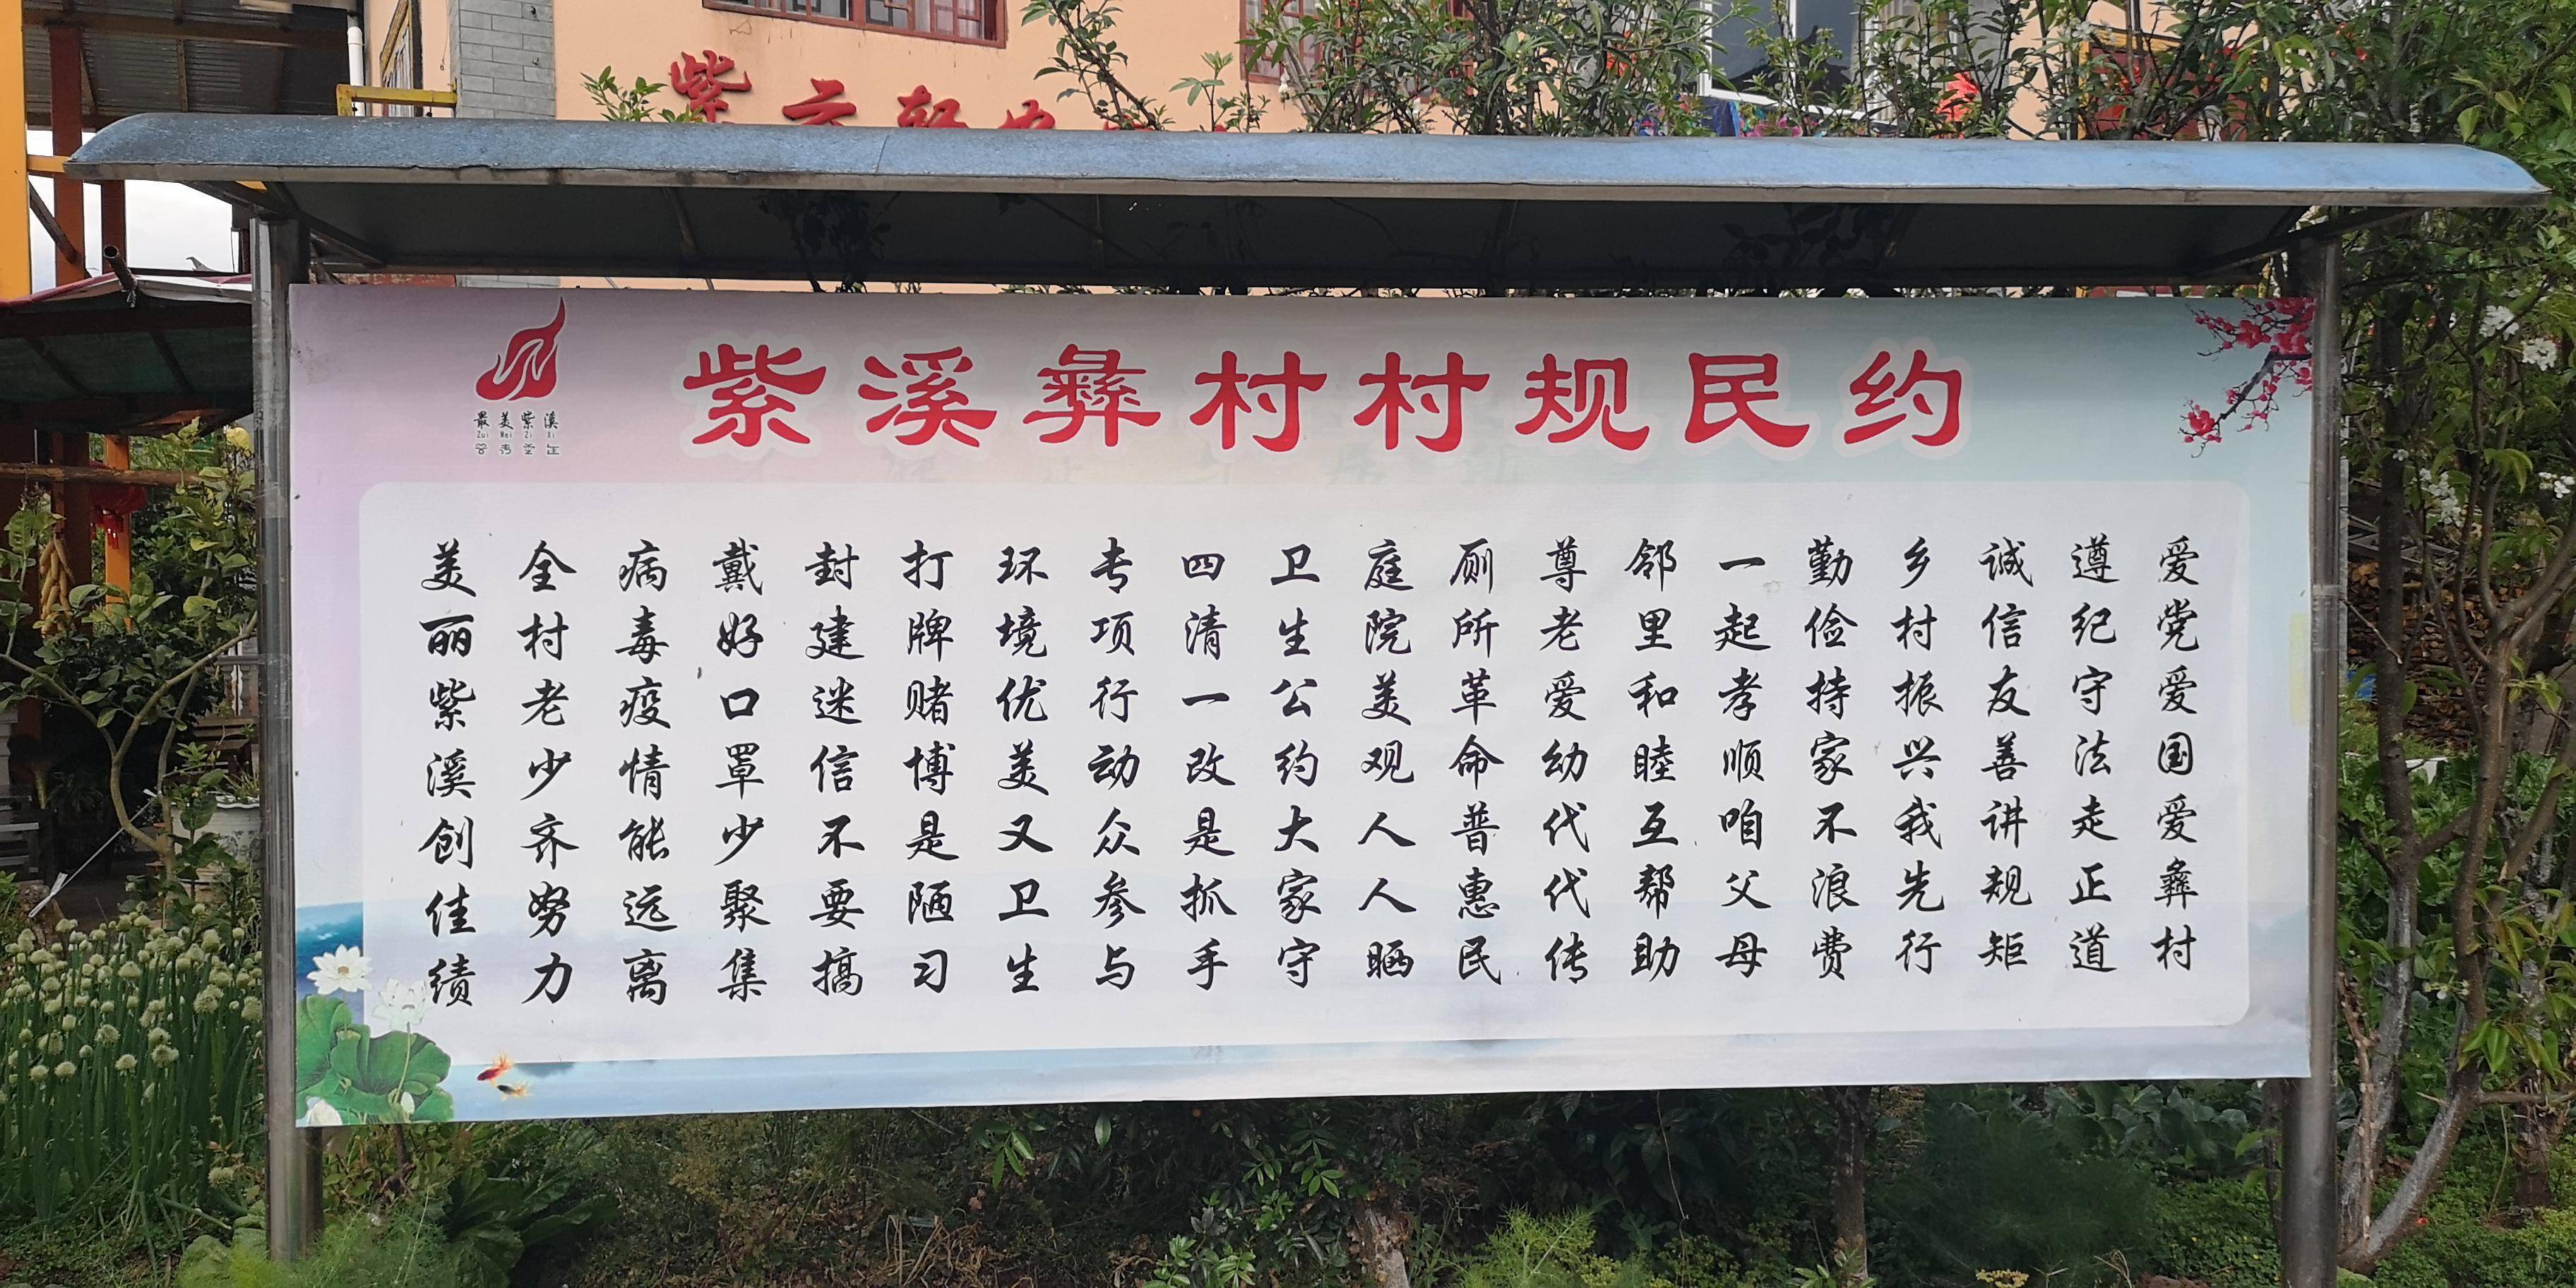 紫云轩
紫溪彝村村规民约
最美紫溪
Zui Mei Zi Xi
爱党爱国爱彝村
遵纪守法走正道
诚信友善讲规矩
乡村振兴我先行
勤俭持家不浪费
一起孝顺咱父母
邻里和睦互帮助
尊老爱幼代代传
厕所革命普惠民
庭院美观人人晒
卫生公约大家守
四清一改是抓手
专项行动众参与
环境优美又卫生
打牌赌博是陋习
封建迷信不要搞
戴好口罩少聚集
病毒疫情能远离
全村老少齐努力
美丽紫溪创佳绩